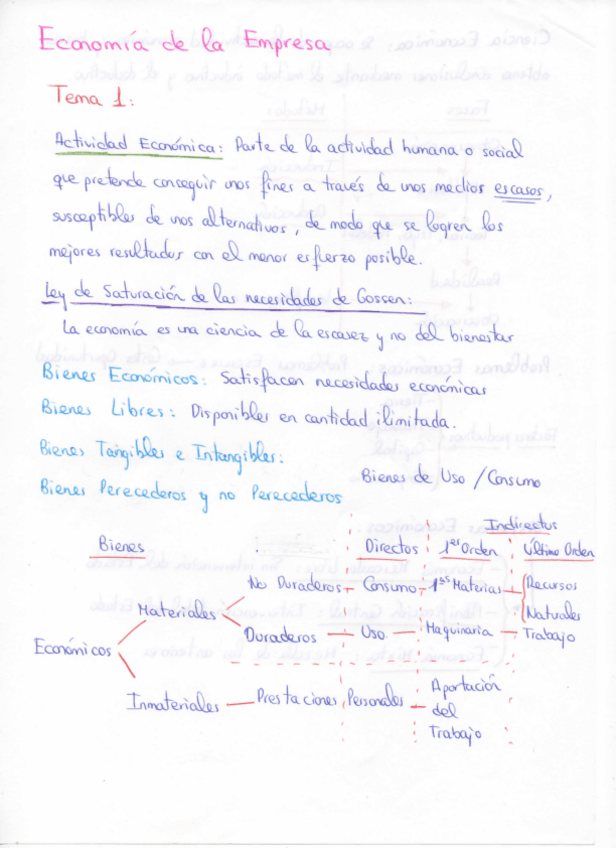 Economía de la Empresa
Tema 1:
Actividad Económica: Parte de la actividad humana o social
que pretende conseguir unos fines a través de unos medios escasos,
susceptibles de usos alternativos, de modo que se logren los
mejores resultados con el menor esfuerzo posible.
Ley de Saturación de las necesidades de Gossen:
La economía es una ciencia de la escasez y no del bienestar
Bienes Económicos: Satisfacen necesidades económicas
Bienes Libres: Disponibles en cantidad ilimitada.
Bienes Tangibles e Intangibles:
Bienes de Uso / Consumo
Bienes Perecederos y no Perecederos
Indirectos
Bienes Directos 1er Orden Último Orden
No Duraderos Consumo 1as Materias Recursos
Materiales Naturales
Duraderos Uso Maquinaria Trabajo
Económicos
Inmateriales Prestaciones Personales Aportación
del
Trabajo